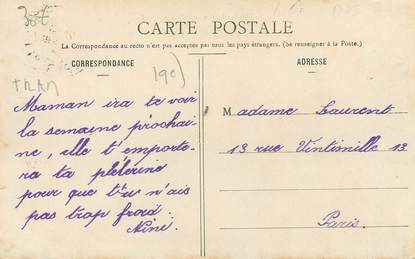 CARTE POSTALE
La Correspondance au recto n'est pas acceptée par tous les pays étrangers. (Se renseigner à la Poste.)
CORRESPONDANCE
ADRESSE
Maman ira te voir
la semaine prochai-
ne, elle t'emporte-
ra ta pélérine
pour que tu n'ais
pas trop froid.
Nini.
Madame Laurent
13 rue Vintimille 13
Paris.